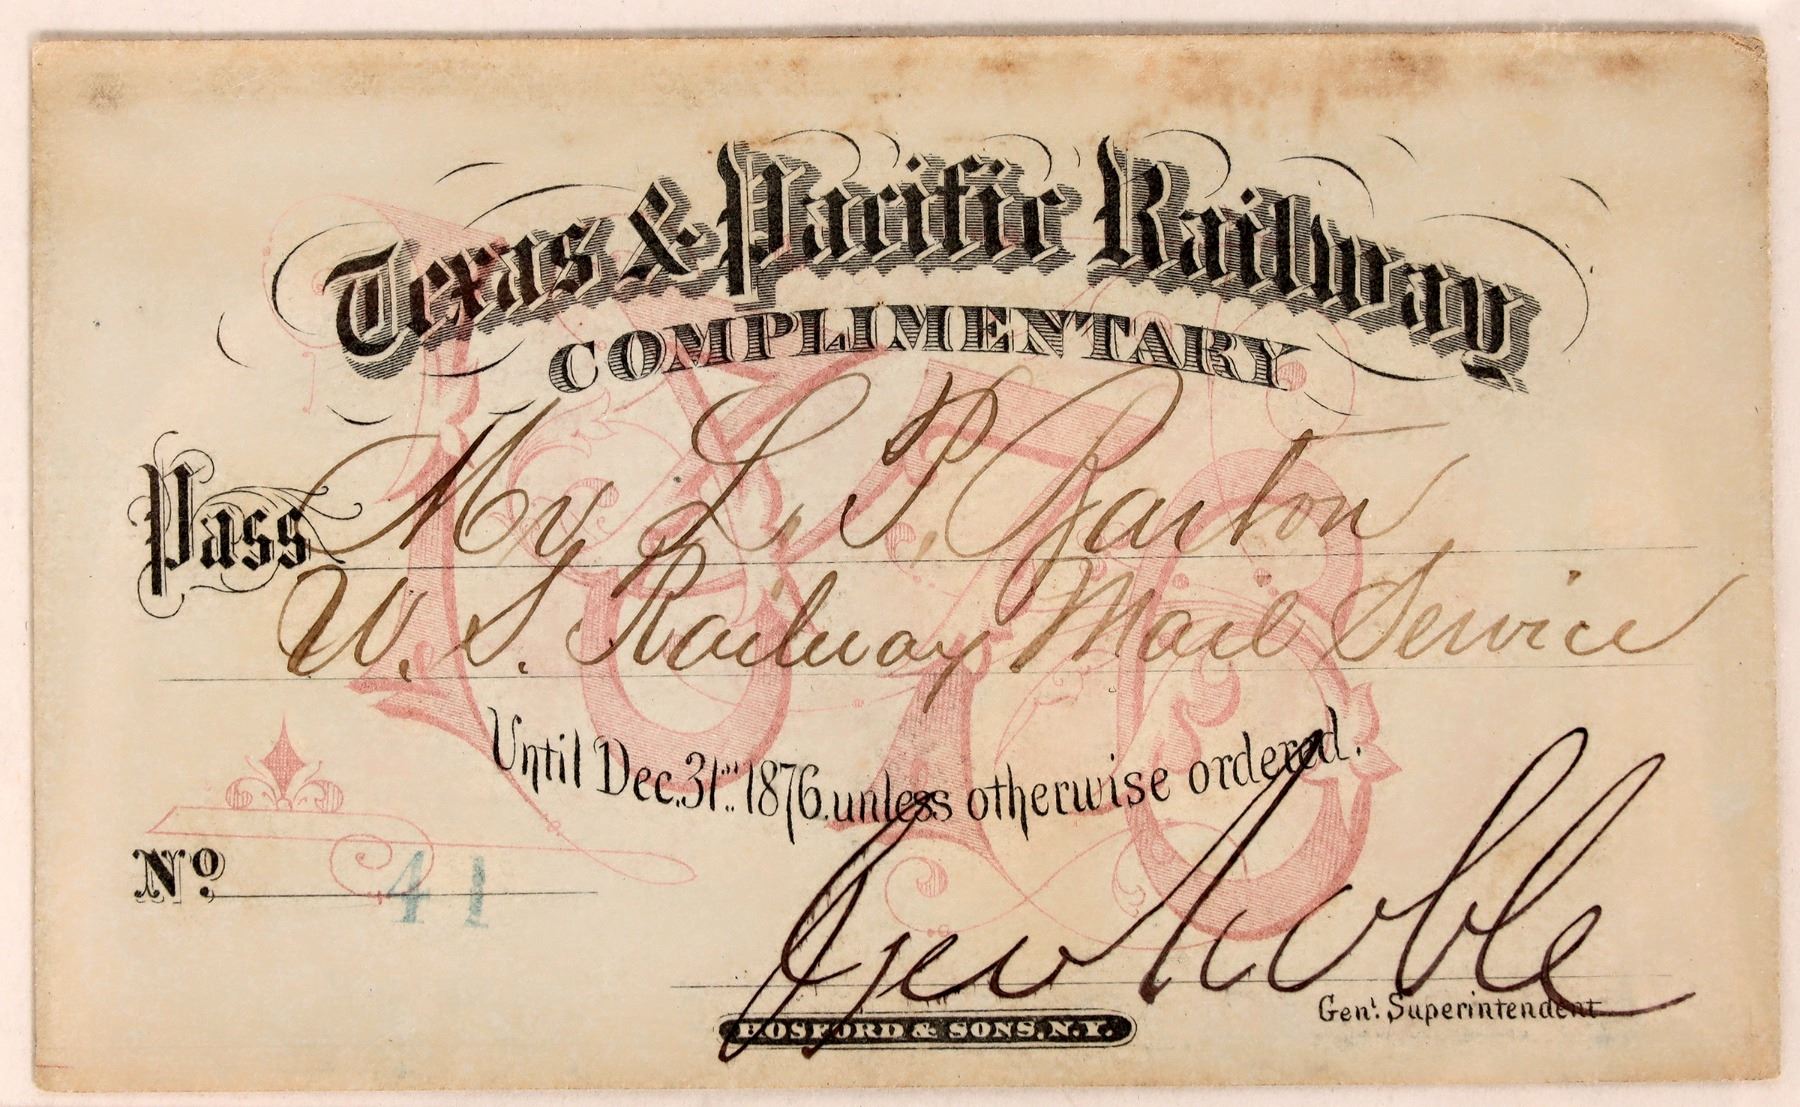 Texas & Pacific Railway
COMPLIMENTARY
Pass Mr L. P. Barton
U. S. Railway Mail Service
Until Dec. 31st 1876. unless otherwise ordered.
No 41
Geo Noble
Genl. Superintendent
HOSFORD & SONS, N.Y.
1876